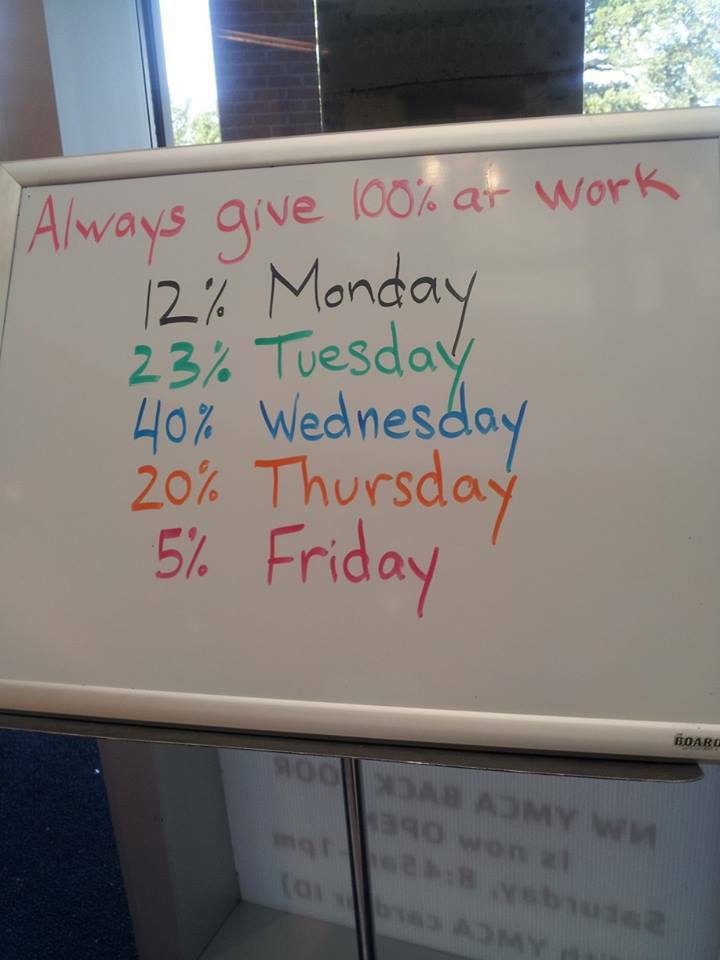 Always give 100% at work
12% Monday
23% Tuesday
40% Wednesday
20% Thursday
5% Friday
BOARD
NW YMCA BACK DOOR
is now OPEN
Saturday, 8:45am-1pm
YMCA card or ID)